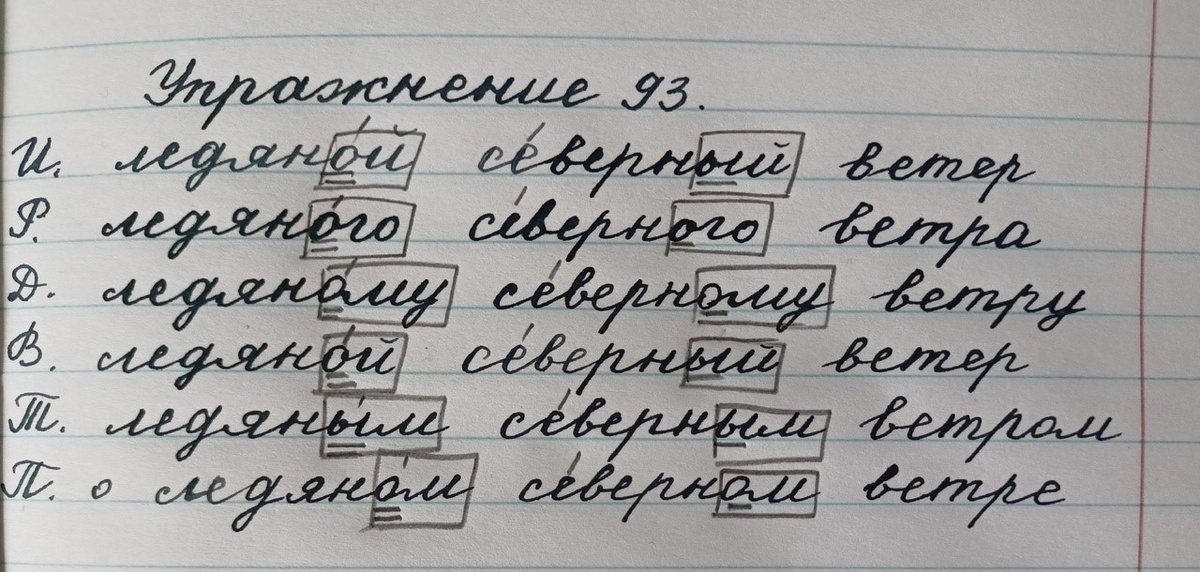 Упражнение 93.
И. ледяно́й се́верный ветер
Р. ледяно́го се́верного ветра
Д. ледяно́му се́верному ветру
В. ледяно́й се́верный ветер
Т. ледяны́м се́верным ветром
П. о ледяно́м се́верном ветре